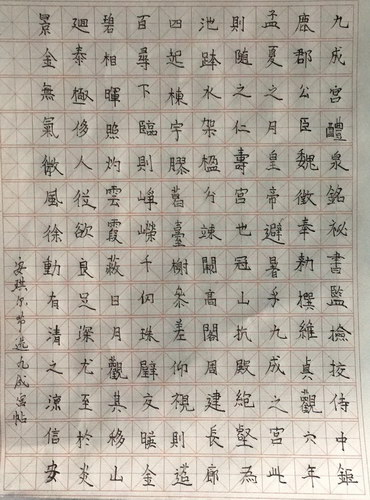 九成宮醴泉銘祕書監撿挍侍中鉅
鹿郡公臣魏徵奉勅撰維貞觀六年
孟夏之月皇帝避暑乎九成之宮此
則隨之仁壽宮也冠山抗殿絕壑為
池跨水架楹分竦闕高閣周建長廊
四起棟宇膠葛臺榭參差仰視則迢
百尋下臨則崢嶸千仞珠壁交暎金
碧相暉照灼雲霞蔽日月觀其移山
廻泰極侈人從欲良足深尤至於炎
景金無氣微風徐動有清之涼信安
安琪尔节选九成宮帖